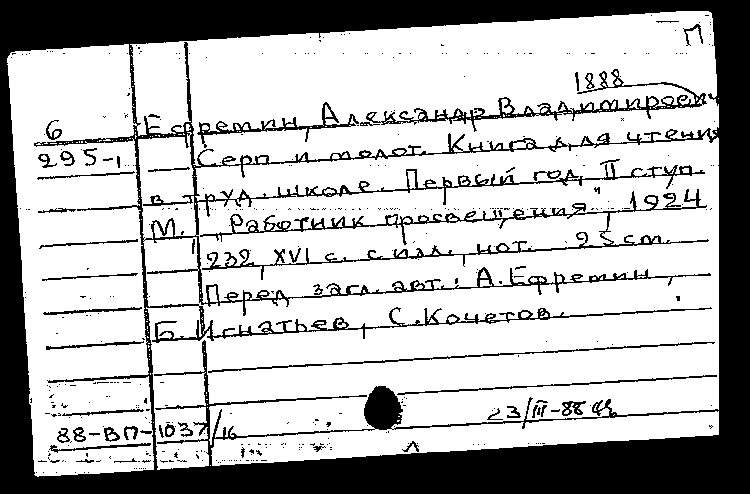 П
1888
6 Ефремин, Александр Владимирович
295-1 Серп и молот. Книга для чтения
в труд. школе. Первый год, II ступ.
М., "Работник просвещения", 1924
232, XVI с. с илл., нот. 25 cm.
Перед загл. авт.: А. Ефремин,
Б. Игнатьев, С. Кочетов.
23/III-88
88-ВП-1037/16